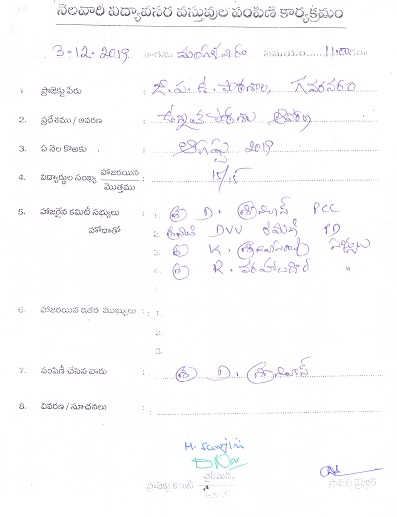 నెలవారి విద్యావసర వస్తువుల పంపిణి కార్యక్రమం
3-12-2019 వారము మంగళవారం సమయం 11.00
1. ప్రాజెక్టు పేరు : జి. ప. ఉ. పాఠశాల, గవరవరం
2. ప్రదేశము / ఆవరణ : ఉన్నత పాఠశాల ఆవరణ
3. ఏ నెల కొఱకు : ఆగష్టు 2019
4. విద్యార్థుల సంఖ్య హాజరయిన / మొత్తము : 15/15
5. హాజరైన కమిటీ సభ్యులు : 1. శ్రీ D. శ్రీనివాస్ PCC
హోదాతో 2. శ్రీమతి DVV రమణి PD
3. శ్రీ K.
4. శ్రీ R. "
6. హాజరయిన ఇతర ముఖ్యులు : 1.
2.
3.
7. పంపిణీ చేసిన వారు : శ్రీ D. శ్రీనివాస్
8. వివరణ / సూచనలు :
M. Sanjini
ప్రాజెక్టు కమిటీ ఛైర్మన్